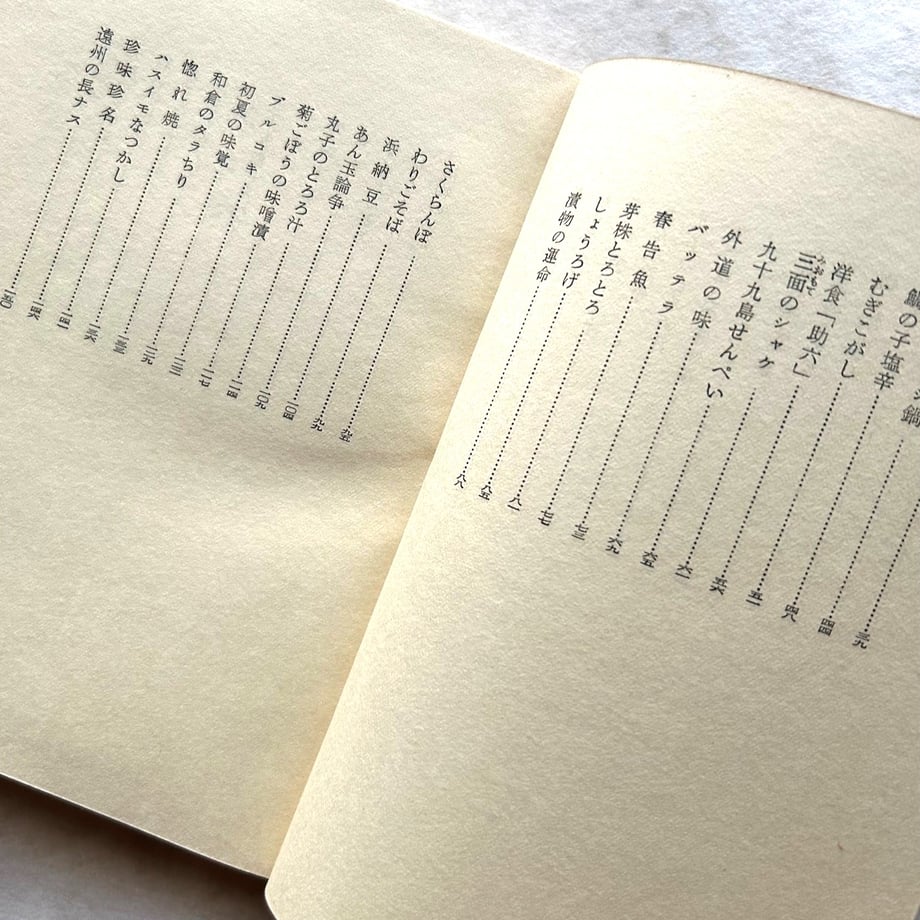 鍋……四四
の子塩辛……四八
むぎこがし……五一
洋食「助六」……五六
三面のシャケ……六一
九十九島せんぺい……六五
外道の味……六九
バッテラ……七三
春告魚……七七
芽株とろとろ……八一
しょうろげ……八五
漬物の運命……八八
さくらんぼ……九五
わりごそば……九九
浜納豆……一〇四
あん玉論争……一〇九
丸子のとろろ汁……一一四
菊ごぼうの味噌漬……一一七
プルコキ……
初夏の味覚……一二九
和倉のタラちり……
惚れ焼……一三六
ハスイモなつかし……一四一
珍味珍名……一四六
遠州の長ナス……